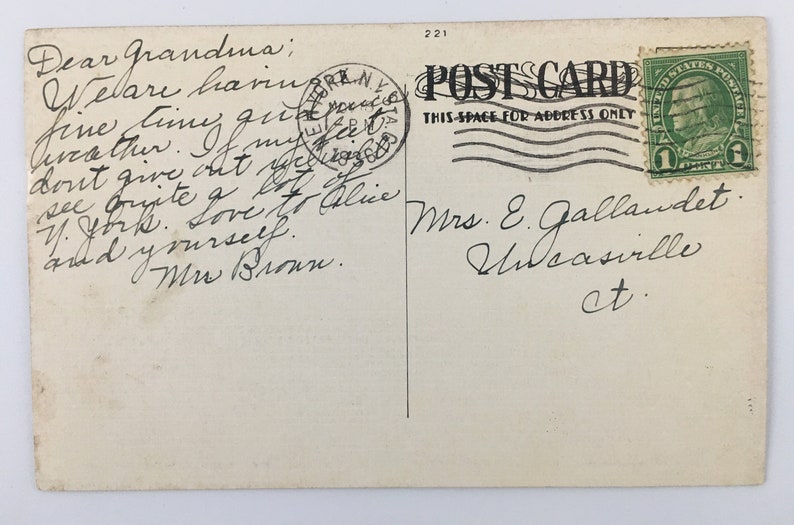 221
Dear Grandma;
We are having
fine time and
weather. If my feet
dont give out we will
see quite a lot of
N. York. Love to Alice
and yourself.
Mrs Brown.
NEW YORK, N.Y. STA.
1936
POST CARD
THIS SPACE FOR ADDRESS ONLY
UNITED STATES POSTAGE
1 1
Mrs. E. Gallaudet.
Uncasville
Ct.